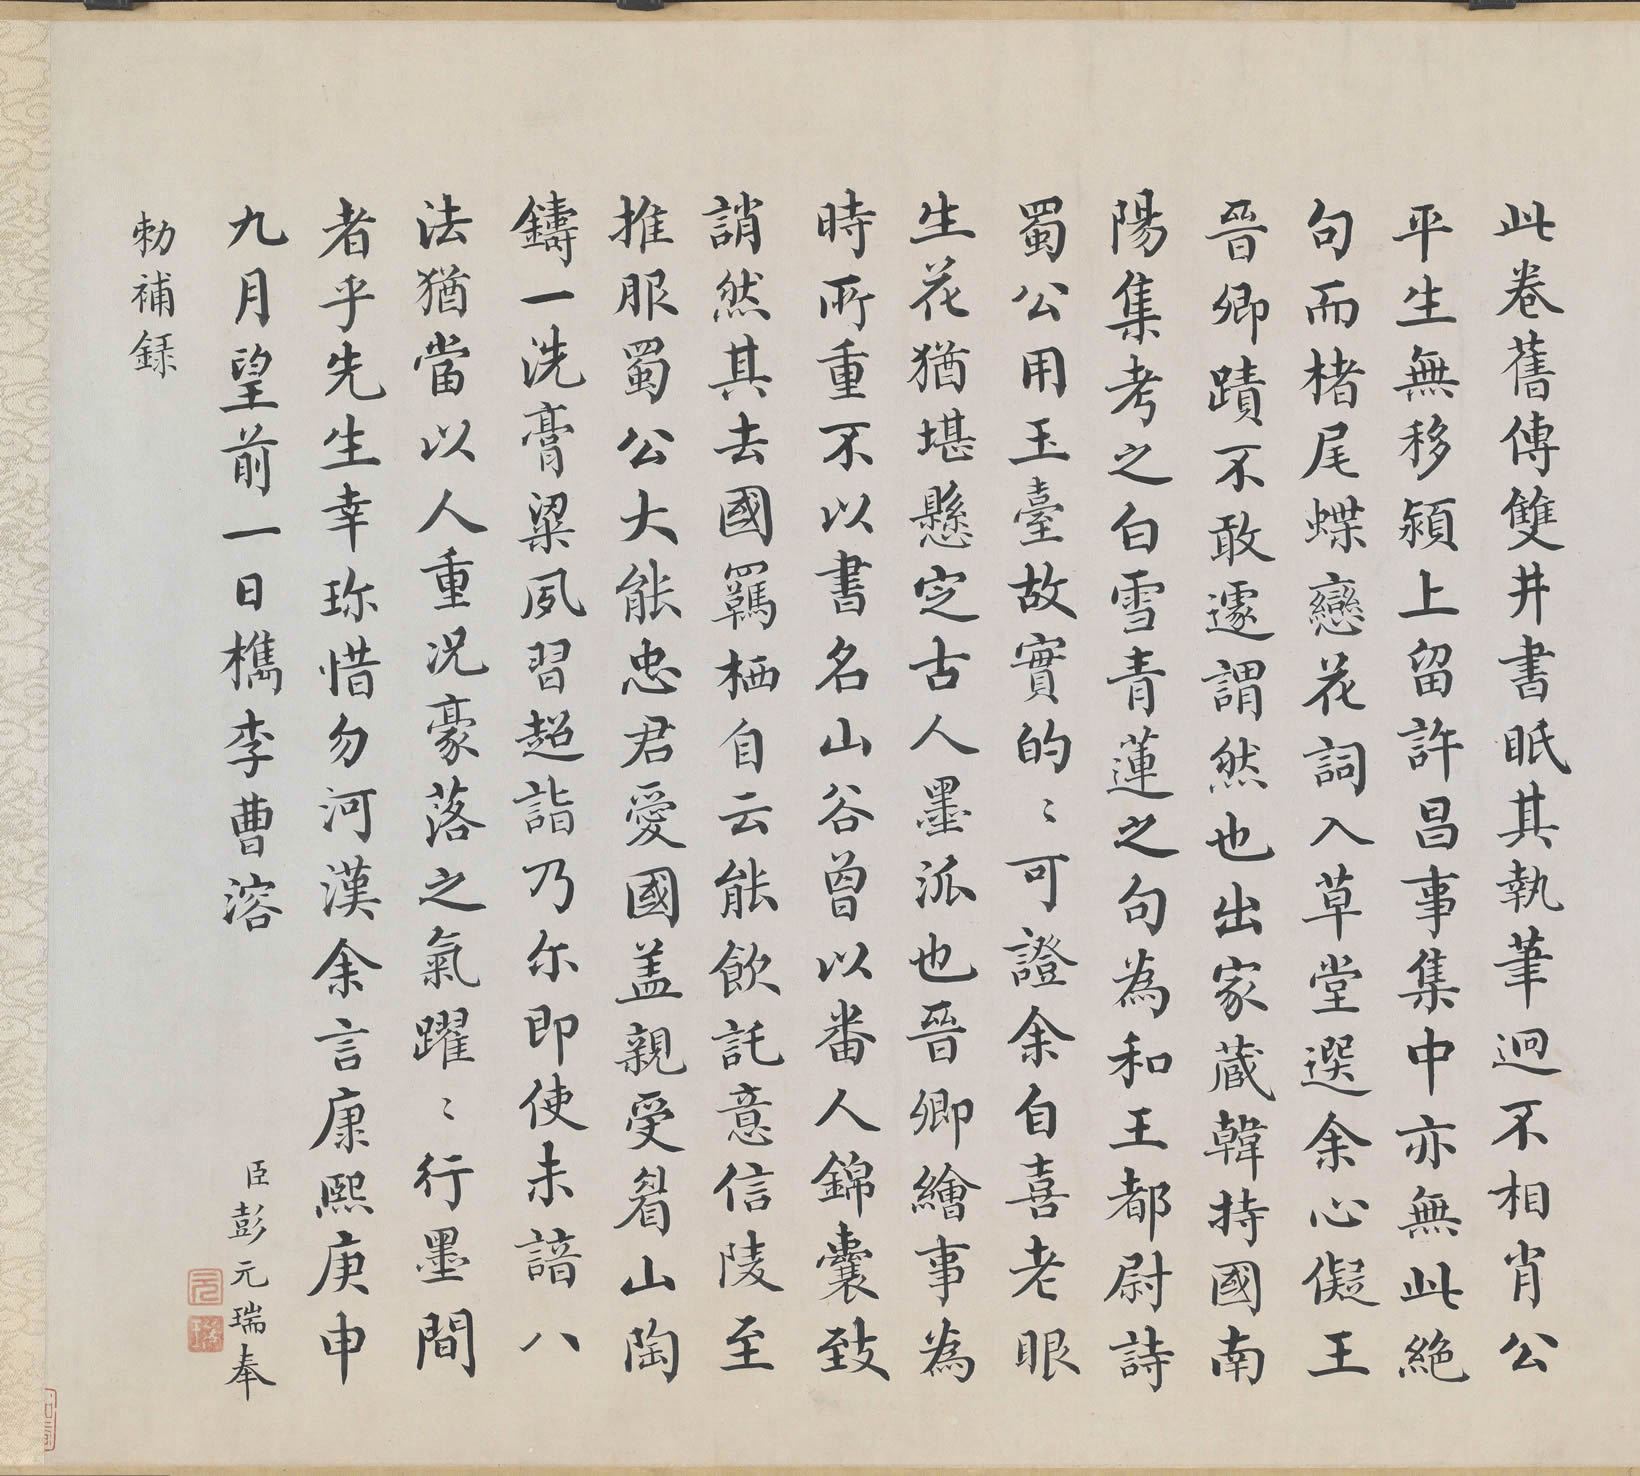 此卷舊傳雙井書眂其執筆迥不相肖公
平生無移潁上留許昌事集中亦無此絕
句而楮尾蝶戀花詞入草堂選余心儗王
晉卿蹟不敢遽謂然也出家蔵韓持國南
陽集考之白雪青蓮之句為和王都尉詩
蜀公用玉臺故實的〻可證余自喜老眼
生花猶堪懸定古人墨派也晉卿繪事為
時所重不以書名山谷曾以番人錦囊致
誚然其去國羈栖自云能飲託意信陵至
推服蜀公大能忠君愛國盖親受眉山陶
鑄一洗膏粱夙習超詣乃尔即使未諳八
法猶當以人重況豪落之氣躍〻行墨間
者乎先生幸珎惜勿河漢余言康熙庚申
九月望前一日檇李曹溶
臣彭元瑞奉
勅補録
元
瑞